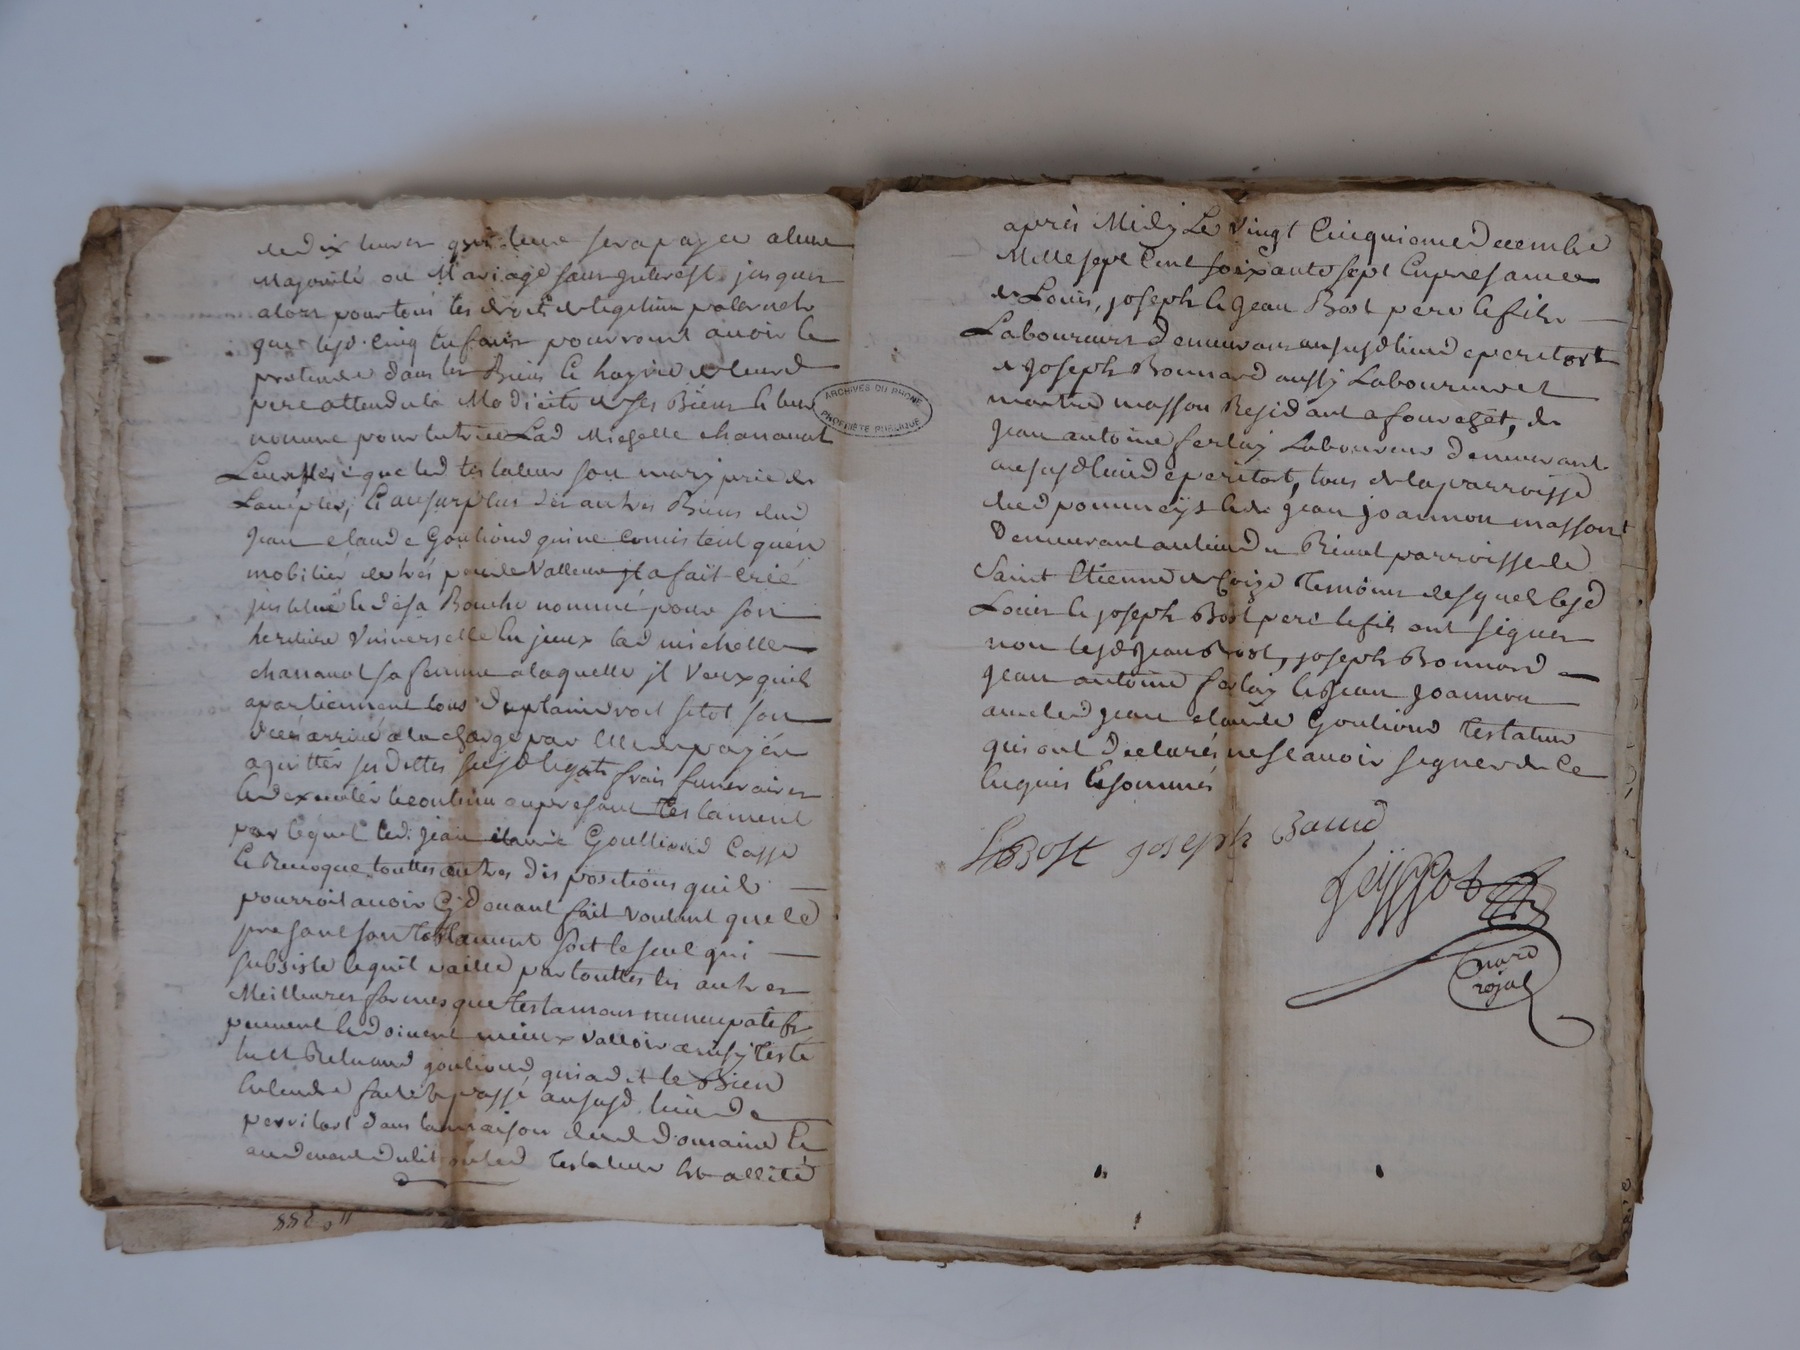 de dix livres qui leur sera payée a leur
Majorité ou Mariage sans interest jusques
alors pour tous les droits de legitime paternels
que lesd. cinq enfans pourront avoir et
pretendre dans les Biens et hoyrie de leurd
pere attendu la Modicité de ses Biens et leur
nomme pour tutrice Lad Michelle charanat
Leur Mere que led testateur son mary prie de
L'accepter, et au surplus des autres Biens dud
Jean claude Goutioud qui ne consistent qu'en
mobilier de tres peu de Valleur il a fait créé
institué et de sa Bouche nommé pour son
heritiere Universelle en jceux lad michelle
charanat sa femme a laquelle il Veux quils
apartiennent tous de plain droit sitot son
decés arrivé a la charge par Elle de payer
aquitter ses dettes susd legats frais funeraires
et d'executer le contenu au present Testament
par lequel led. Jean claude Goutlioud Casse
et Revoque touttes autres dispositions quil
pourroit avoir cy devant fait voulant que le
present son Testament soit le seul qui
subsiste et quil vaille par touttes les autres
Meilleures formes que testamens nuncupatifs
peuvent et doivent mieux valloir ainsy Testé
goutioud qui a dit le Bien
Entendre fait et passé au susd. lieu de
peritort dans la maison dud Domaine et
au devant du lit ou led Testateur Est allité
88 20 "
après Midy Le Vingt Cinquieme decembre
Mille sept Cent soixante sept En presance
de Louis, joseph et Jean Bost pere et fils
Laboureurs Demeurans au susd lieu de peritort
de Joseph Bonnard aussy Laboureur et
maitre masson Residant a fouragêt, de
Jean antoine ferlay Laboureur demeurant
au susd lieu de peritort, tous de la parroisse
dud pommeÿs et de Jean Joannon masson
Demeurant au lieu du parroisse de
Saint Etienne de Coize Temoins desquels lesd
Louis et joseph Bost pere et fils ont signer
non lesd Jean Bost, joseph Bonnard
Jean antoine ferlay et Jean Joannon
avec led Jean claude Goutioud Testateur
qui ont declarés ne sçavoir signer de ce
Enquis et sommés
LBost joseph Baud
nore
rojal
ARCHIVES DU RHONE
PROPRIÉTÉ PUBLIQUE